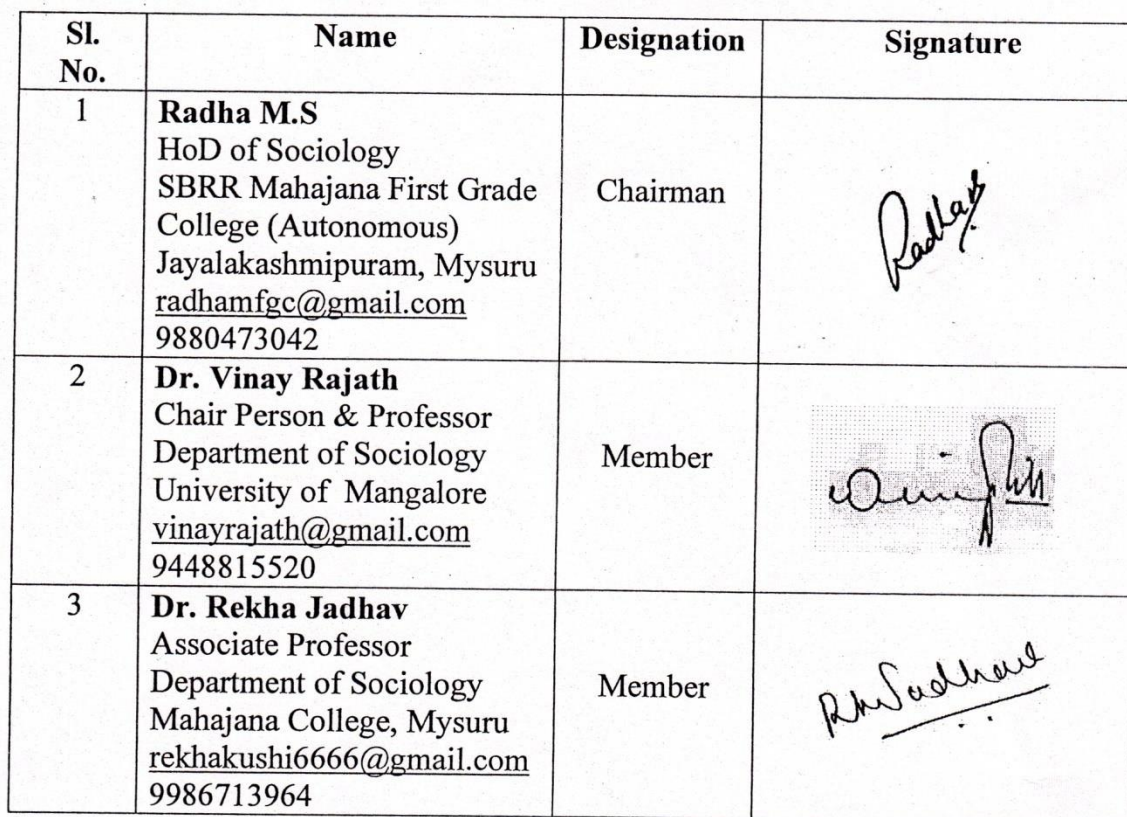 Sl. No. Name Designation Signature
1 Radha M.S
HoD of Sociology
SBRR Mahajana First Grade
College (Autonomous)
Jayalakashmipuram, Mysuru
radhamfgc@gmail.com
9880473042
Chairman
Radha
2 Dr. Vinay Rajath
Chair Person & Professor
Department of Sociology
University of Mangalore
vinayrajath@gmail.com
9448815520
Member
3 Dr. Rekha Jadhav
Associate Professor
Department of Sociology
Mahajana College, Mysuru
rekhakushi6666@gmail.com
9986713964
Member